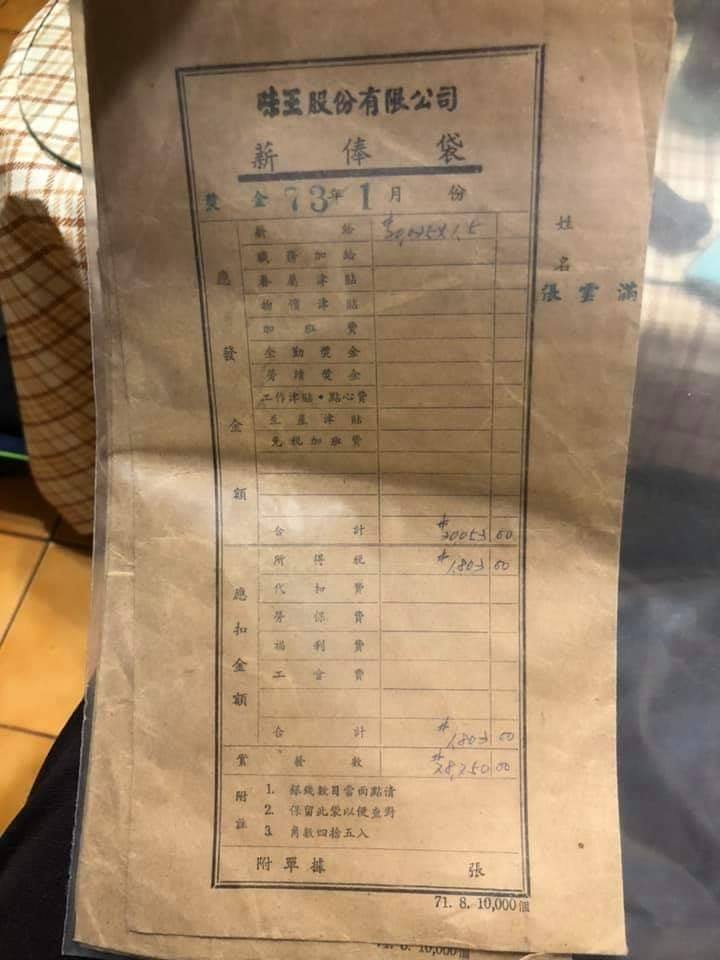 味王股份有限公司
薪俸袋
獎金 73年1月份
姓名
張雲滿
應發金額
薪給
職務加給
眷屬津貼
物價津貼
加班費
全勤獎金
勞績獎金
工作津貼•點心費
津貼
免稅加班費
合計 00
所得稅 #1,803 00
代扣費
勞保費
福利費
工會費
應扣金額
合計 #1,803 00
實發數 #28,250 00
附註
1. 銀錢數目當面點清
2. 保留此袋以便查對
3. 角數四捨五入
附單據 張
71. 8. 10,000個
71. 8. 10,000個